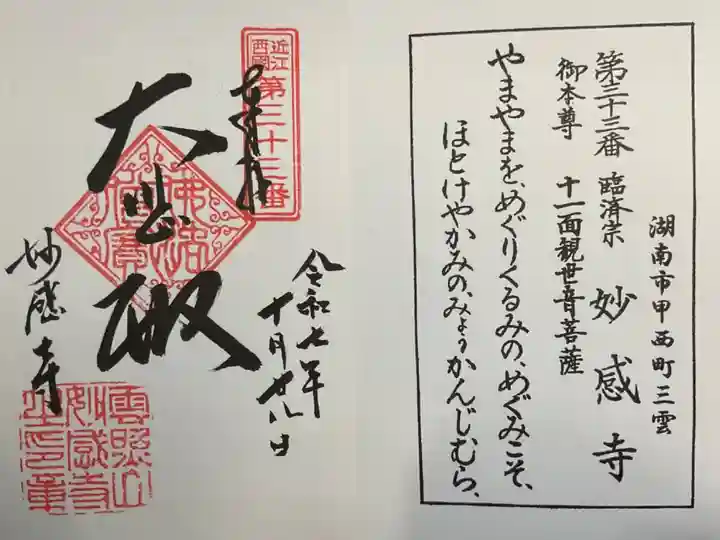 湖南市甲西町三雲
第三十三番 臨済宗 妙感寺
御本尊 十一面観世音菩薩
やまやまを、めぐりくるみの、めぐみこそ、
ほとけやかみの、みょうかんじむら、
近江
西国
第三十三番
奉拝
大悲殿
令和七年
十月廿八日
妙感寺
雲照山
妙感寺